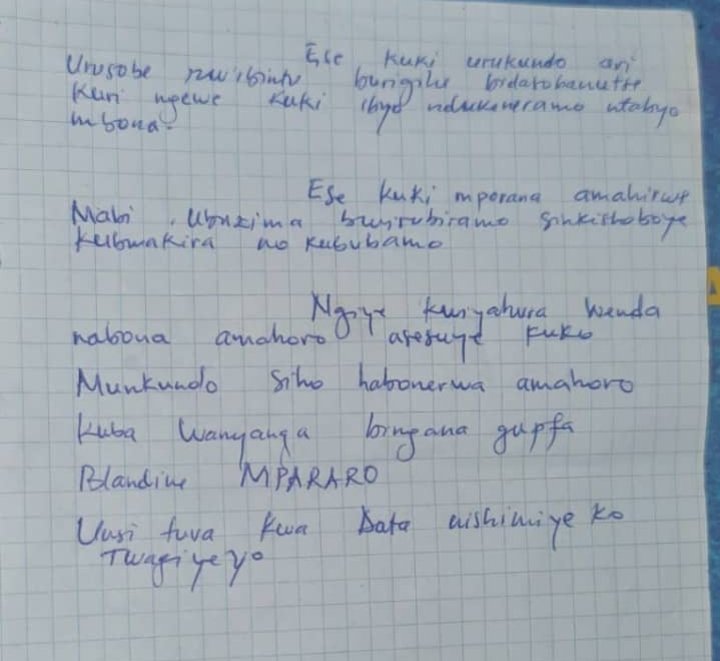 Ese kuki urukundo ari
Urusobe rw'ibintu burigihe bidasobanutse
Kuri ngewe kuki ibyo ndukeneramo ntabyo
mbona.
Ese kuki mporana amahirwe
Mabi. Ubuzima bwirubiramo sinkishoboye
kubwakira no kububamo
Ngiye kuriyahura wenda
nabona amahoro asesuye kuko
Munkundo siho habonerwa amahoro
Kuba Wanyanga bingana gupfa
Blandine MPARARO
Uusi tuva kwa Data nishimiye ko
Twagiyeyo